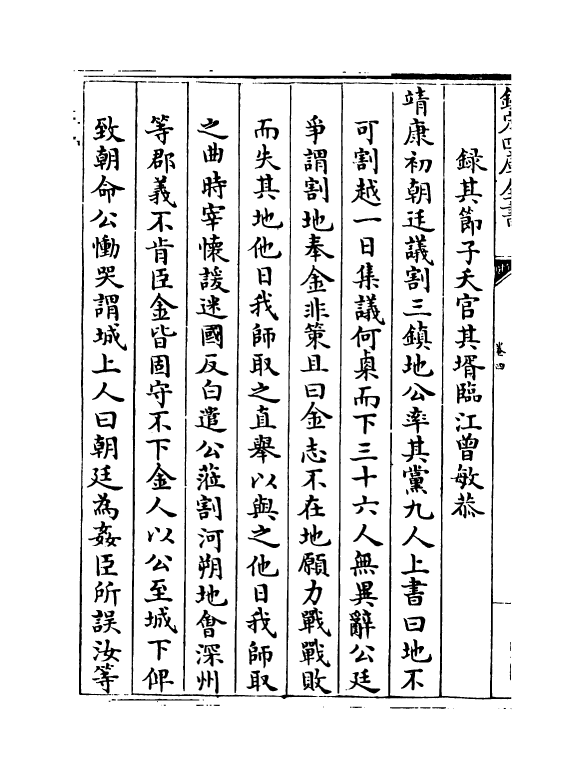 欽定四庫全書
卷四
録其節子天官其壻臨江曾敏恭
靖康初朝廷議割三鎮地公率其黨九人上書曰地不
可割越一日集議何㮚而下三十六人無異辭公廷
爭謂割地奉金非策且曰金志不在地願力戰戰敗
而失其地他日我師取之直舉以與之他日我師取
之曲時宰懷諼迷國反白遣公蒞割河朔地會深州
等郡義不肯臣金皆固守不下金人以公至城下俾
致朝命公慟哭謂城上人曰朝廷為姦臣所誤汝等